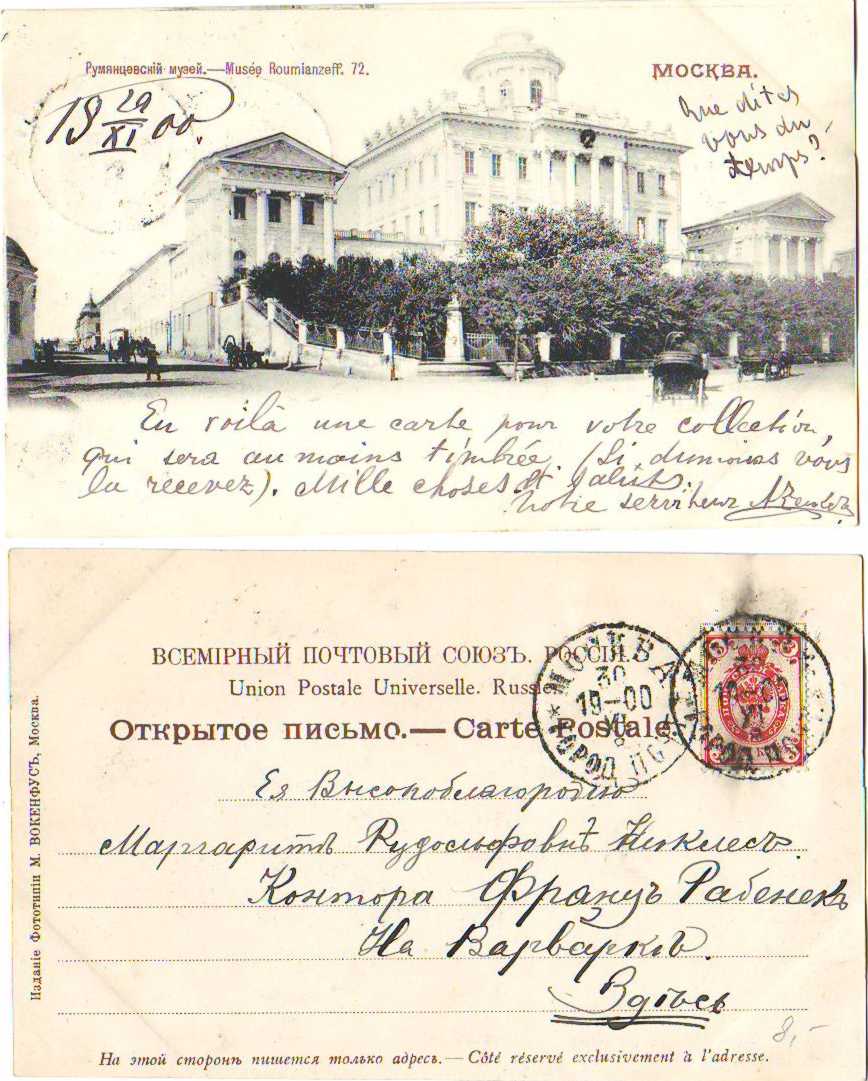 Румянцевскій музей.—Musée Roumianzeff. 72.
МОСКВА.
19 29/XI 00
Que dites
vous du
temps?
En voilà une carte pour votre collection,
qui sera au moins timbrée. (Si du moins vous
la recevez). Mille choses et saluts.
Votre serviteur
ВСЕМІРНЫЙ ПОЧТОВЫЙ СОЮЗЪ. РОССІЯ.
Union Postale Universelle. Russie.
Открытое письмо.— Carte Postale.
МОСКВА
30
19-00
XI
8
ГОРОД. ПОЧ
Ея Высокоблагородію
Маргаритѣ Рудольфовнѣ Никлесъ
Контора Францъ Рабенекъ
На Варваркѣ.
Здѣсь
8,-
Изданіе Фототипіи М. ВОКЕНФУСЪ, Москва.
На этой сторонѣ пишется только адресъ.— Côté réservé exclusivement à l'adresse.